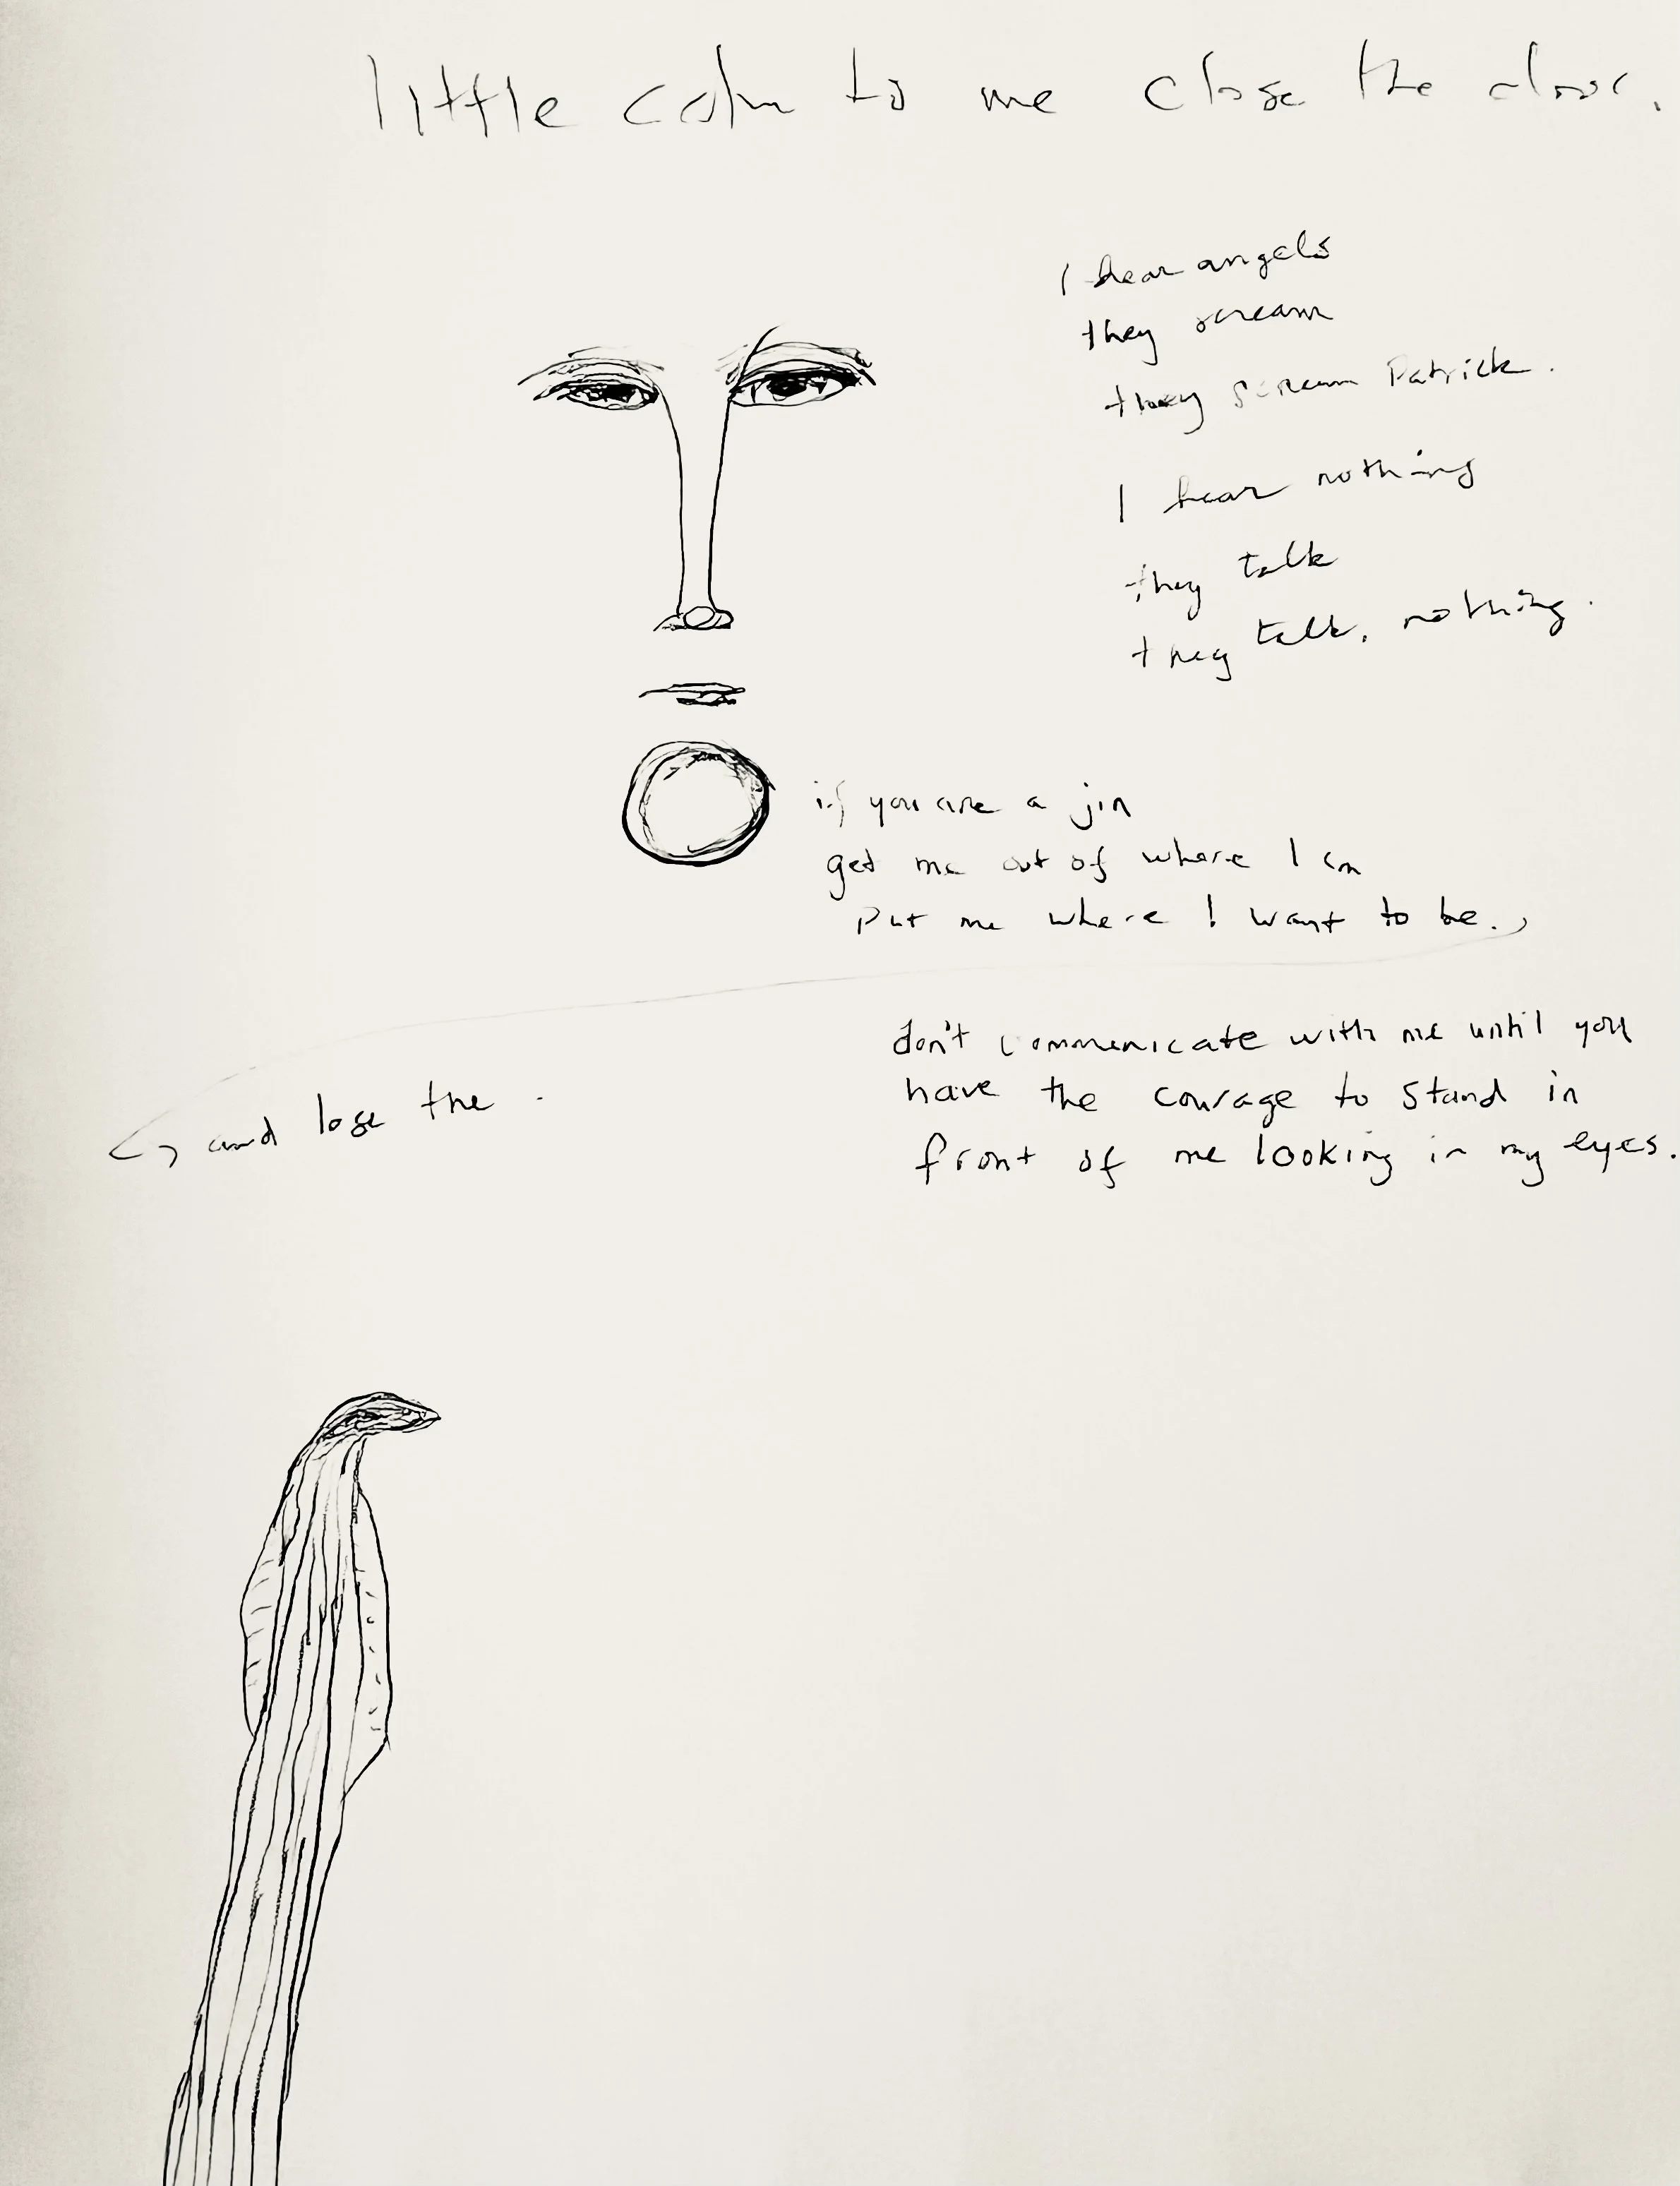 little calm to me close the door.
I hear angels
they scream
they scream Patrick.
I hear nothing
they talk
they talk, nothing.
if you are a jin
get me out of where I am
put me where I want to be.
don't communicate with me until you
have the courage to stand in
front of me looking in my eyes.
and lose the .